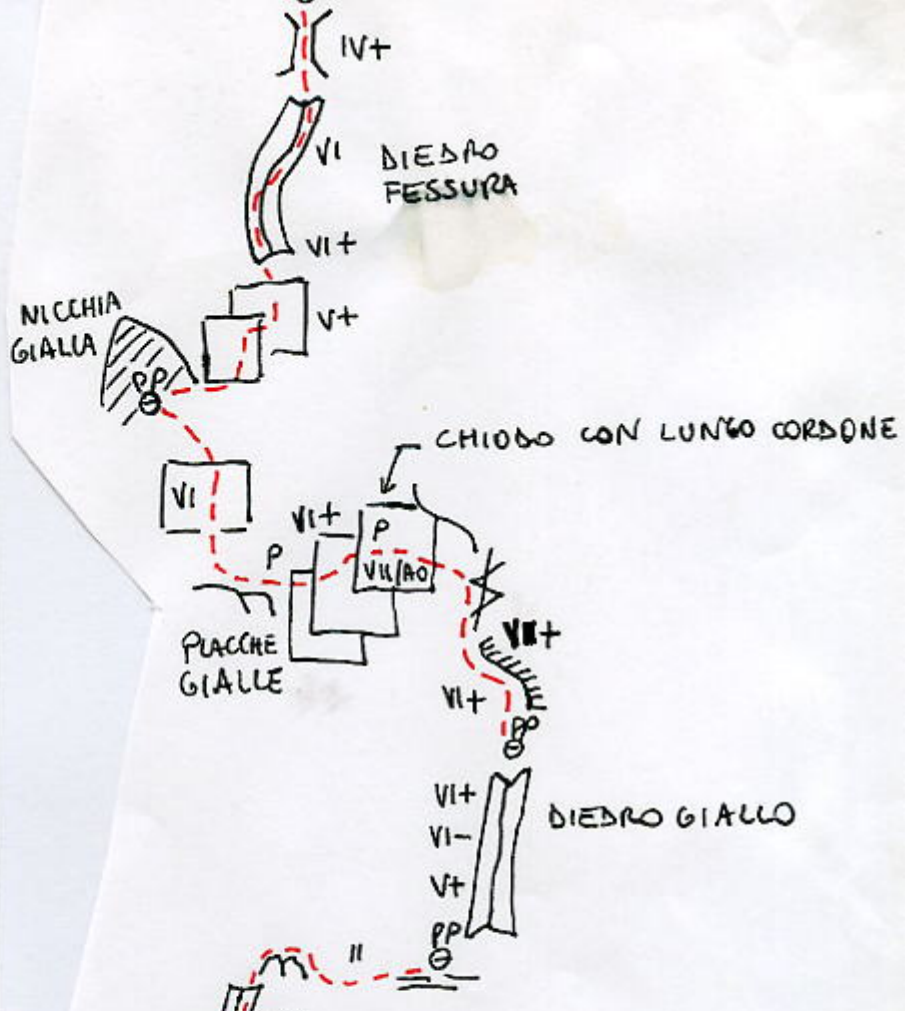 IV+
VI
DIEDRO
FESSURA
VI+
NICCHIA
GIALLA
V+
PP
CHIODO CON LUNGO CORDONE
VI
VI+
P
P
VII/A0
PLACCHE
GIALLE
VII+
VI+
PP
VI+
VI-
V+
DIEDRO GIALLO
PP
II